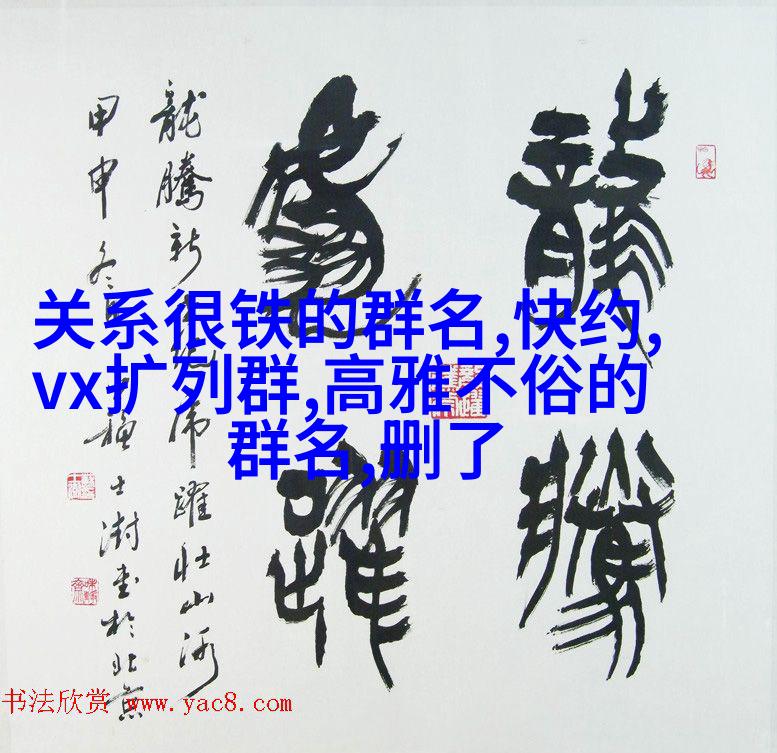 龍騰
虎躍
龍騰新
席躍壮山河
甲申冬
士澍書於北京
关系很铁的群名,快约,
vx扩列群,高雅不俗的
群名,删了
书法欣赏 www.yac8.com